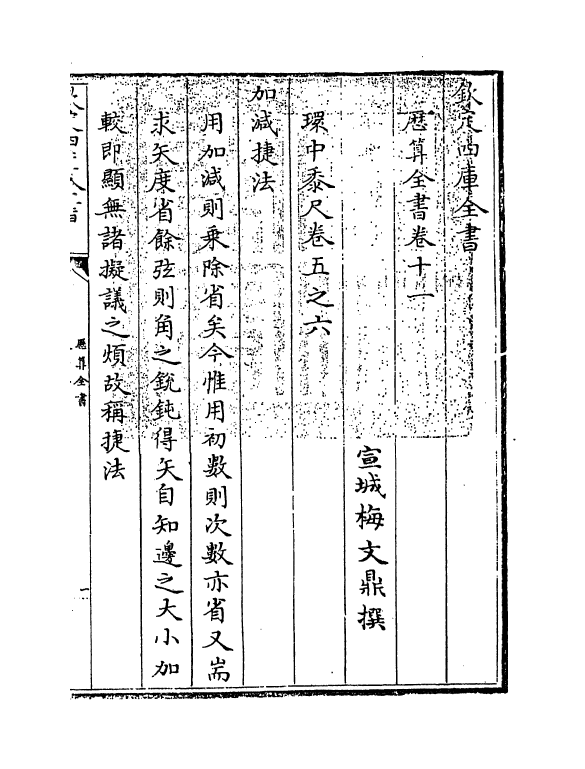 欽定四庫全書
厯算全書卷十一
宣城梅文鼎撰
環中黍尺卷五之六
加減捷法
用加減則乗除省矣今惟用初數則次數亦省又耑
求矢度省餘弦則角之銳鈍得矢自知邊之大小加
較即顯無諸擬議之煩故稱捷法
厯算全書
一